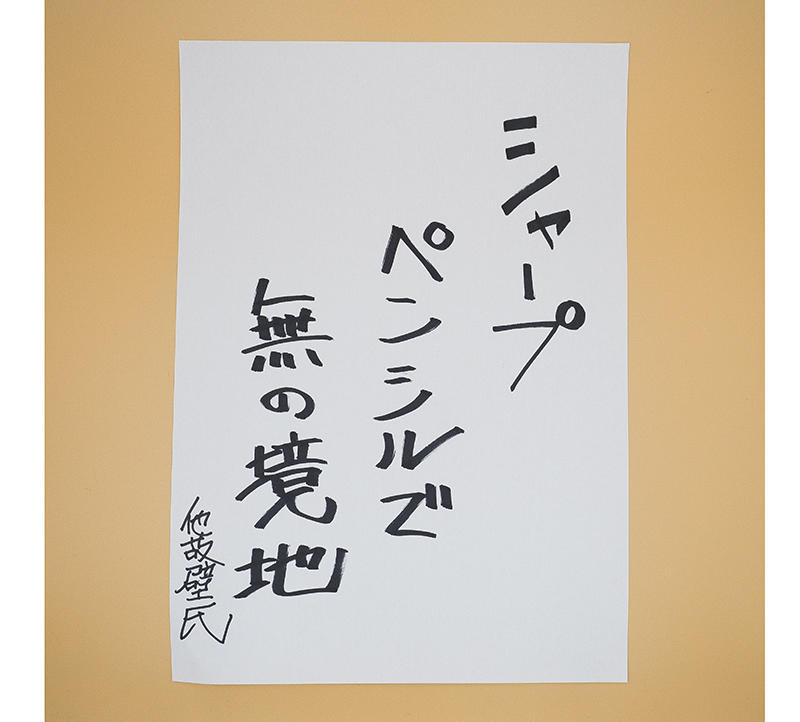 シャープ
ペンシルで
無の境地
他故壁氏